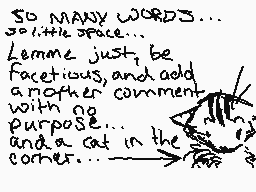 SO MANY WORDS...
so little space...
Lemme just, be
facetious, and add
another comment
with no
purpose...
and a cat in the
corner...